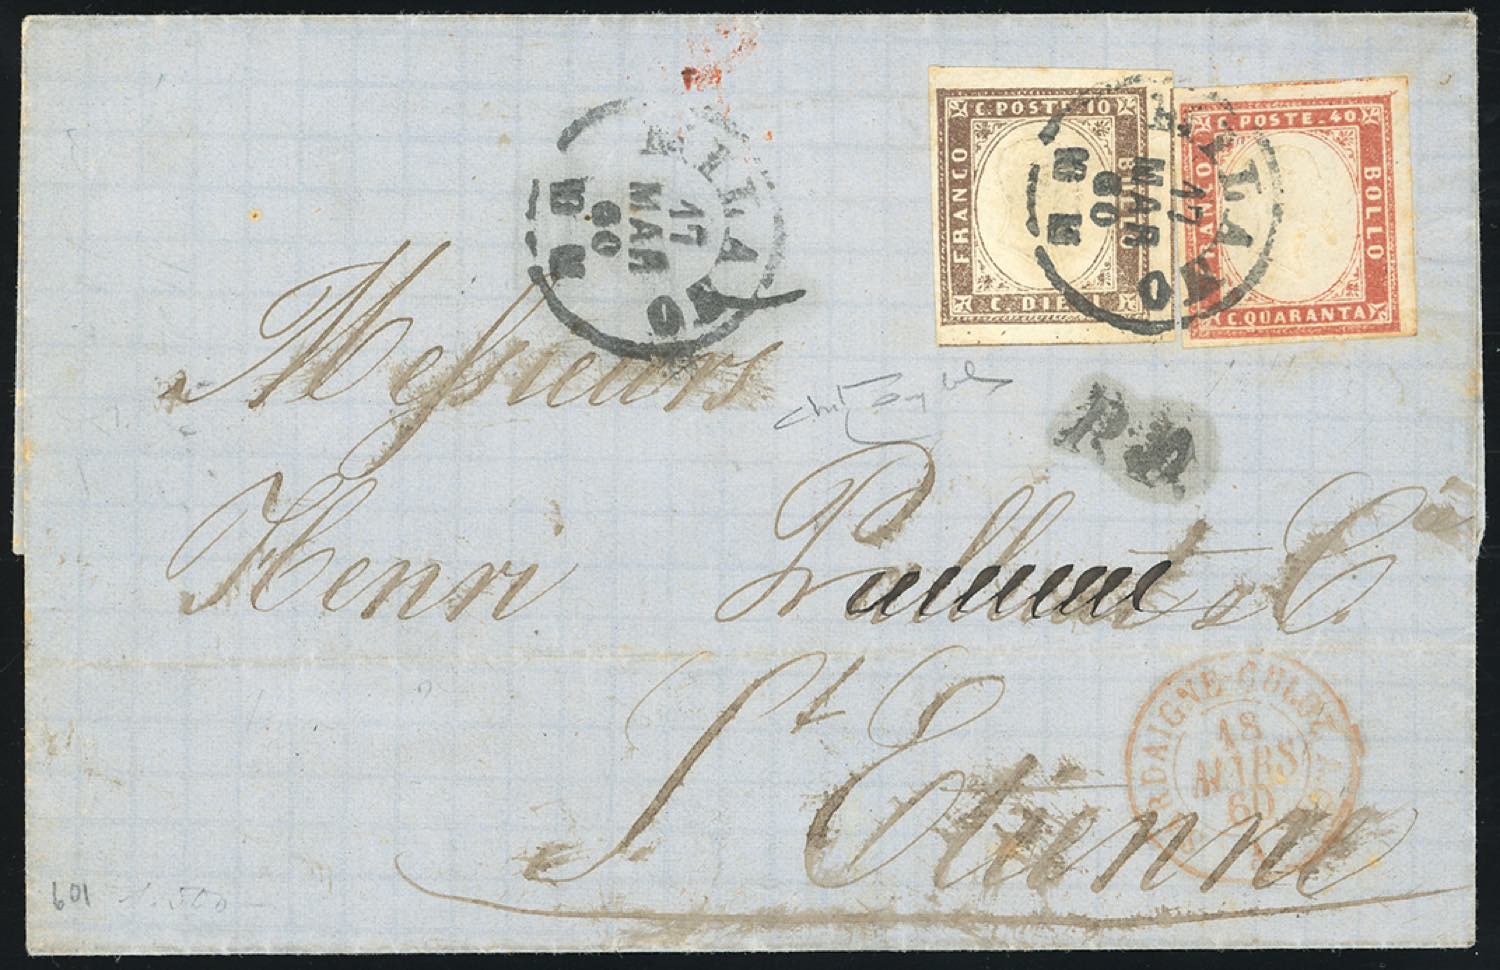 C. POSTE. 10
FRANCO
BOLLO
C. DIECI
C. POSTE. 40
FRANCO
BOLLO
C. QUARANTA
MILANO
17
MAR
60
MILANO
17
MAR
60
P.D.
Messieurs
Henri & Cie
St Etienne
SARDAIGNE CULOZ
18
MARS
60
601